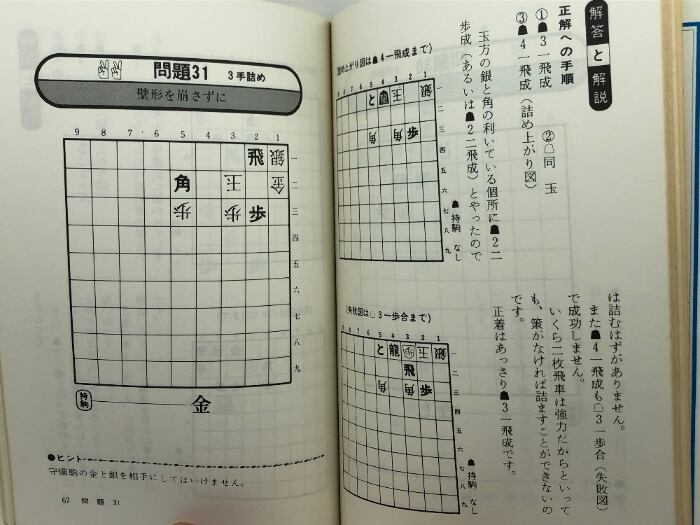 解答と解説
正解への手順
①☗3一飛成　②☖同　玉
③☗4一飛成（詰め上がり図）
玉方の銀と角の利いている個所に☗2二
歩成（あるいは☗2二飛成）とやったので
は詰むはずがありません。
また☗4一飛成も☖3一歩合（失敗図）
で成功しません。
いくら二枚飛車は強力だからといって
も、策がなければ詰ますことができないの
です。
正着はあっさり☗3一飛成です。
詰め上がり図は☗4一飛成まで）
5 4 3 2 1
と 玉 銀
角 角 歩
一 二 三 四 五 六 七 八 九
☗持駒　なし
（失敗図は☖3一歩合まで）
と 龍 歩 玉 銀
飛
角 角 歩
一 二 三 四 五 六 七 八 九
☗持駒　なし
問題31　3手詰め
壁形を崩さずに
9 8 7 6 5 4 3 2 1
飛 銀 一
角 玉 金 二
歩 歩 歩 三
四
五
六
七
八
九
持駒　金
●ヒント
守備駒の金と銀を相手にしてはいけません。
67　問題 31